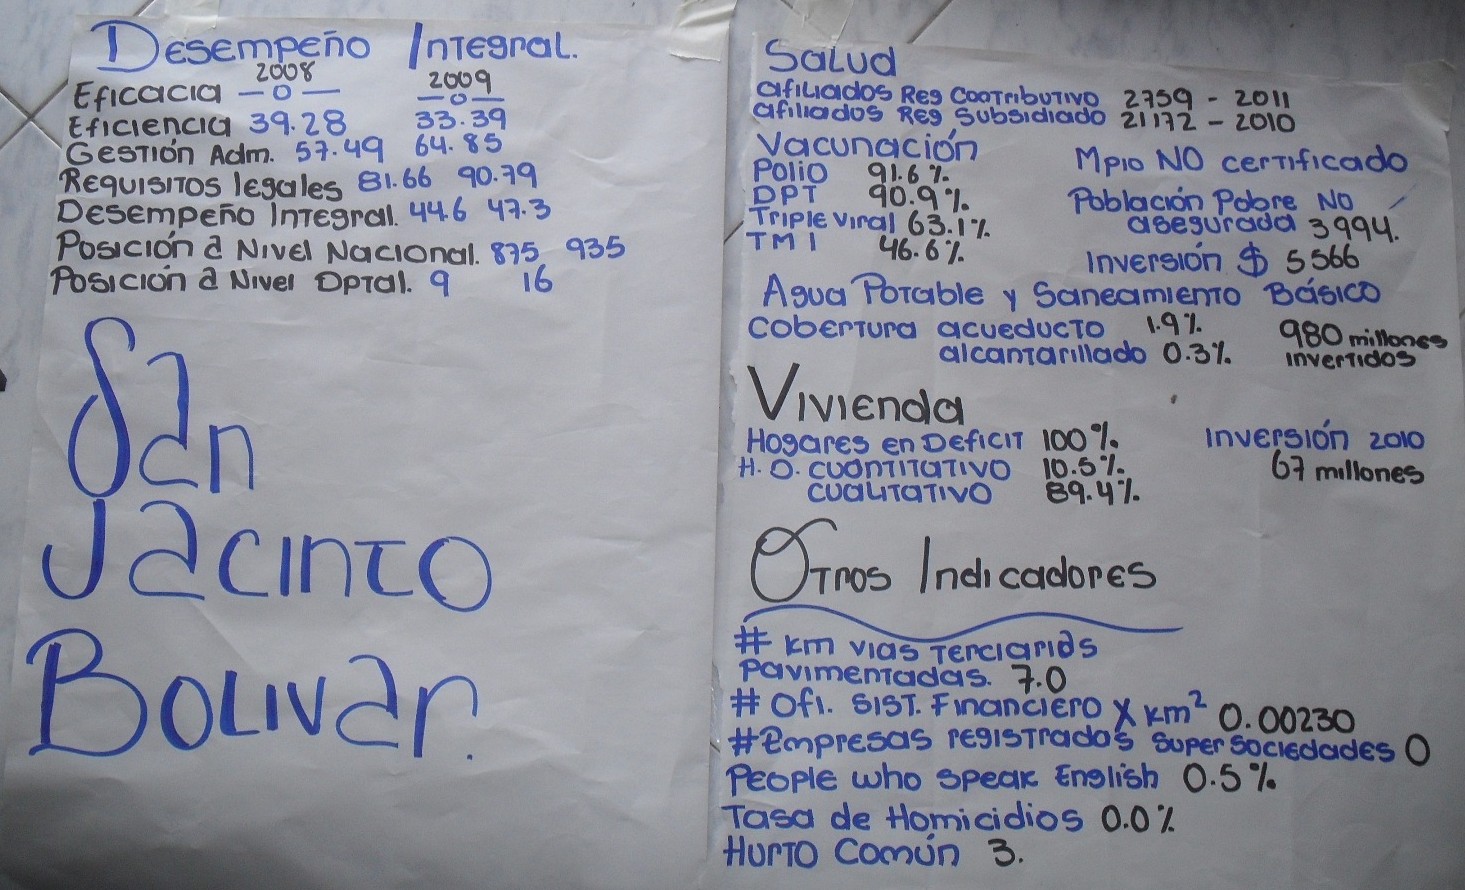 Desempeño Integral.
2008 2009
Eficacia — 0 — — 0 —
Eficiencia 39.28 33.39
Gestión Adm. 57.49 64.85
Requisitos legales 81.66 90.79
Desempeño Integral. 44.6 47.3
Posición a Nivel Nacional. 875 935
Posición a Nivel Dptal. 9 16
San
Jacinto
Bolivar.
Salud
afiliados Reg Contributivo 2759 - 2011
afiliados Reg Subsidiado 21172 - 2010
Vacunación
Polio 91.6%
DPT 90.9%
Triple Viral 63.1%
TMI 46.6%
Mpio NO certificado
Población Pobre NO
asegurada 3994.
Inversión $ 5566
Agua Potable y Saneamiento Básico
cobertura acueducto 1.9%
alcantarillado 0.3%
980 millones
invertidos
Vivienda
Hogares en Deficit 100%
H. D. cuantitativo 10.5%
cualitativo 89.4%
Inversión 2010
67 millones
Otros Indicadores
# km vias Terciarias
Pavimentadas. 7.0
# Ofi. Sist. Financiero X km² 0.00230
# Empresas registradas super sociedades 0
People who speak English 0.5%
Tasa de Homicidios 0.0%
Hurto Común 3.